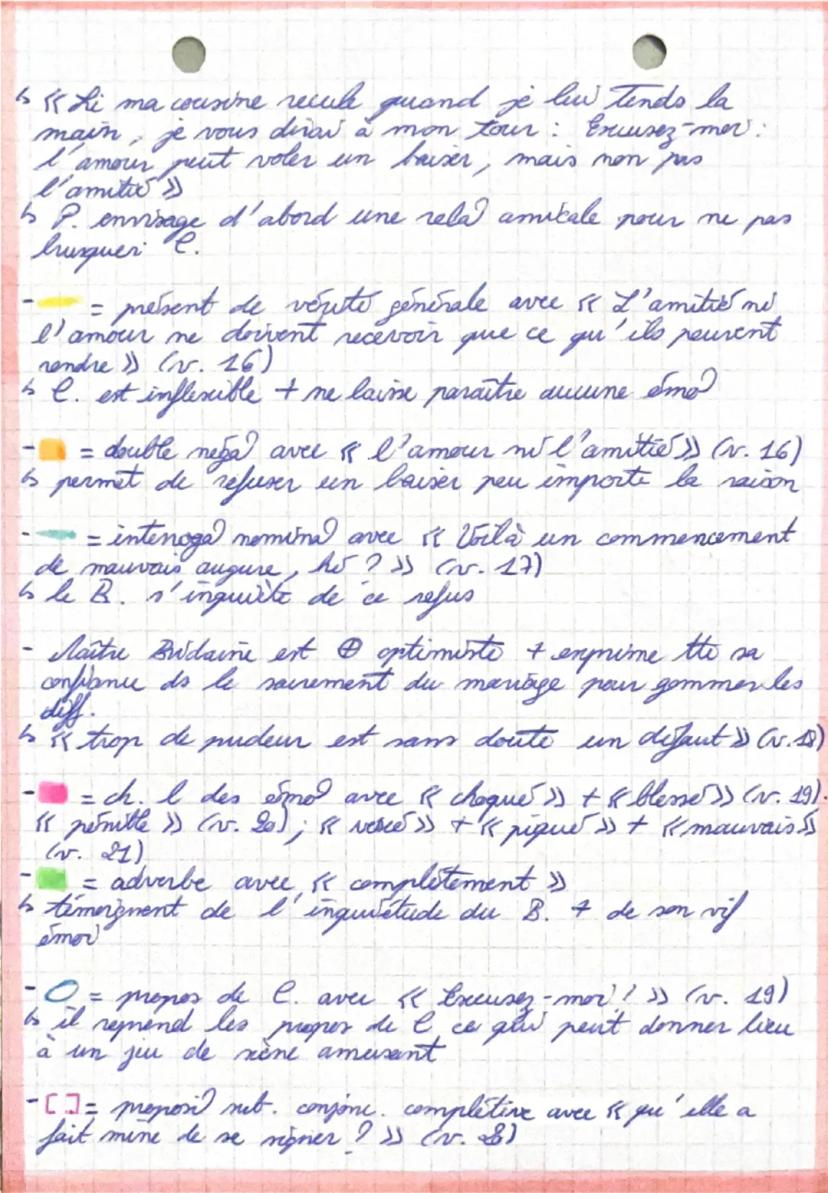 ↳ « Si ma cousine recule quand je lui tends la
main, je vous dirai à mon tour : Excusez-moi :
l'amour peut voler un baiser, mais non pas
l'amitié »
↳ P. envisage d'abord une rela° amicale pour ne pas
brusquer C.
- = présent de vérité générale avec « L'amitié ni
l'amour ne doivent recevoir que ce qu'ils peuvent
rendre » (v. 16)
↳ C. est inflexible + ne laisse paraître aucune émo°
- = double néga° avec « l'amour ni l'amitié » (v. 16)
↳ permet de refuser un baiser peu importe la raison
- = interroga° nomina° avec « Voilà un commencement
de mauvais augure, hé ? » (v. 17)
↳ le B. s'inquiète de ce refus
- Maître Bridaine est ⊕ optimiste + exprime tte sa
confiance ds le sacrement du mariage pour gommer les
diff.
↳ « trop de pudeur est sans doute un défaut » (v. 18)
- = ch. l des émo° avec « choqué » + « blessé » (v. 19).
« pénible » (v. 20) ; « vexé » + « piqué » + « mauvais »
(v. 21)
- = adverbe avec « complètement »
↳ témoignent de l'inquiétude du B. + de son vif
émoi
- = propos de C. avec « Excusez-moi ! » (v. 19)
↳ il reprend les propos de C ce qui peut donner lieu
à un jeu de scène amusant
- [ ] = proposi° sub. conjonc. complétive avec « qu'elle a
fait mine de se signer ? » (v. 28)